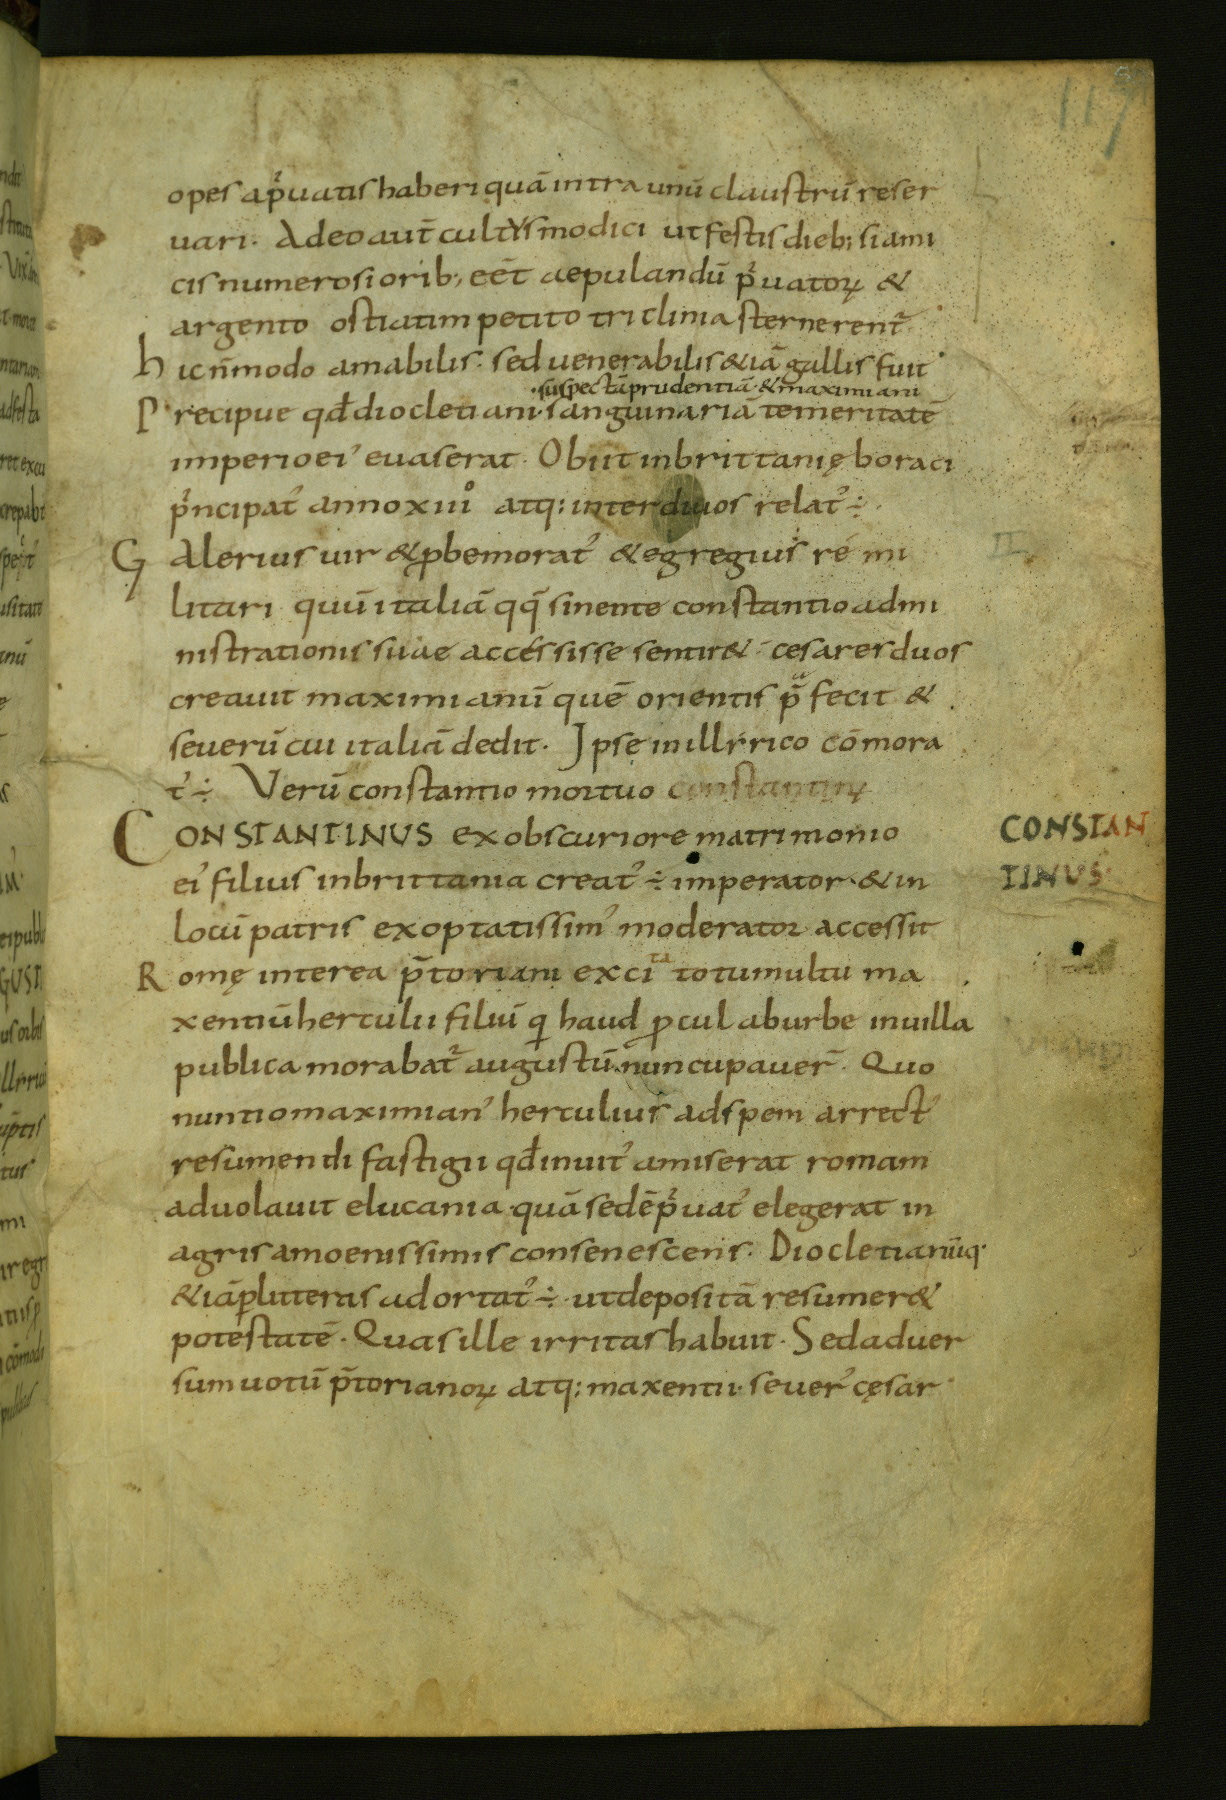 117
opes ap̓uatis haberi quā intra unū claustrū reser
uari. Adeo aut̄ cultʏs modici ut festis dieb; si ami
cis numerosiorib; eēt aepulandū p̓uatoꝝ &
argento ostiatim petito triclinia sternerent̓.
hic n̄ modo amabilis. sed uenerabilis &iā gallis fuit
.suspectā prudentiā. & maximiani
Precipue qđ diocletiani. sanguinariā temeritatē
imperio ei᾿ euaserat. Obiit in brittanię boraci
p̓ncipat᾿ anno xiii° atq; inter diuos relat᾿ ÷.
Galerius uir & ꝓbe morat᾿ & egregius ré mi
litari quū italiā qq̄ sinente constantio admi
nistrationis suae accéssisse sentir& cesares duos
creauit maximianū quē orientis p̄ᵃ fecit &
seuerū cui italiā dedit. Ipse in illʏrico cōmora
t᾿ ÷ Verū constantio mortuo constantinꝝ
CONSTANTINUS ex obscuriore matrimonio
ei᾿ filius in brittania creat᾿ ÷ imperator. & in
locū patris exoptatissim᾿ moderator accessit
Romę interea p̄toriani exci ta to tumultu ma
xentiū herculii filiū qi haud ꝓcul ab urbe in uilla
publica morabat̓ augustū. nuncupauer̄. Quo
nuntio maximian᾿ herculius ad spem arrect᾿
resumendi fastigii qđ inuit᾿ amiserat romam
aduolauit e lucania quā sedē p̓uat᾿ elegerat in
agris amoenissimis consenescens. Diocletianūq·
&iā ꝑ litteras adortat᾿ ÷ ut depositā resumer&
potestatē. Quas ille irritas habuit. Sed aduer
sum uotū p̄torianoꝝ atq; maxentii. seuer᾿ cęsar
CONSTAN
TINUS